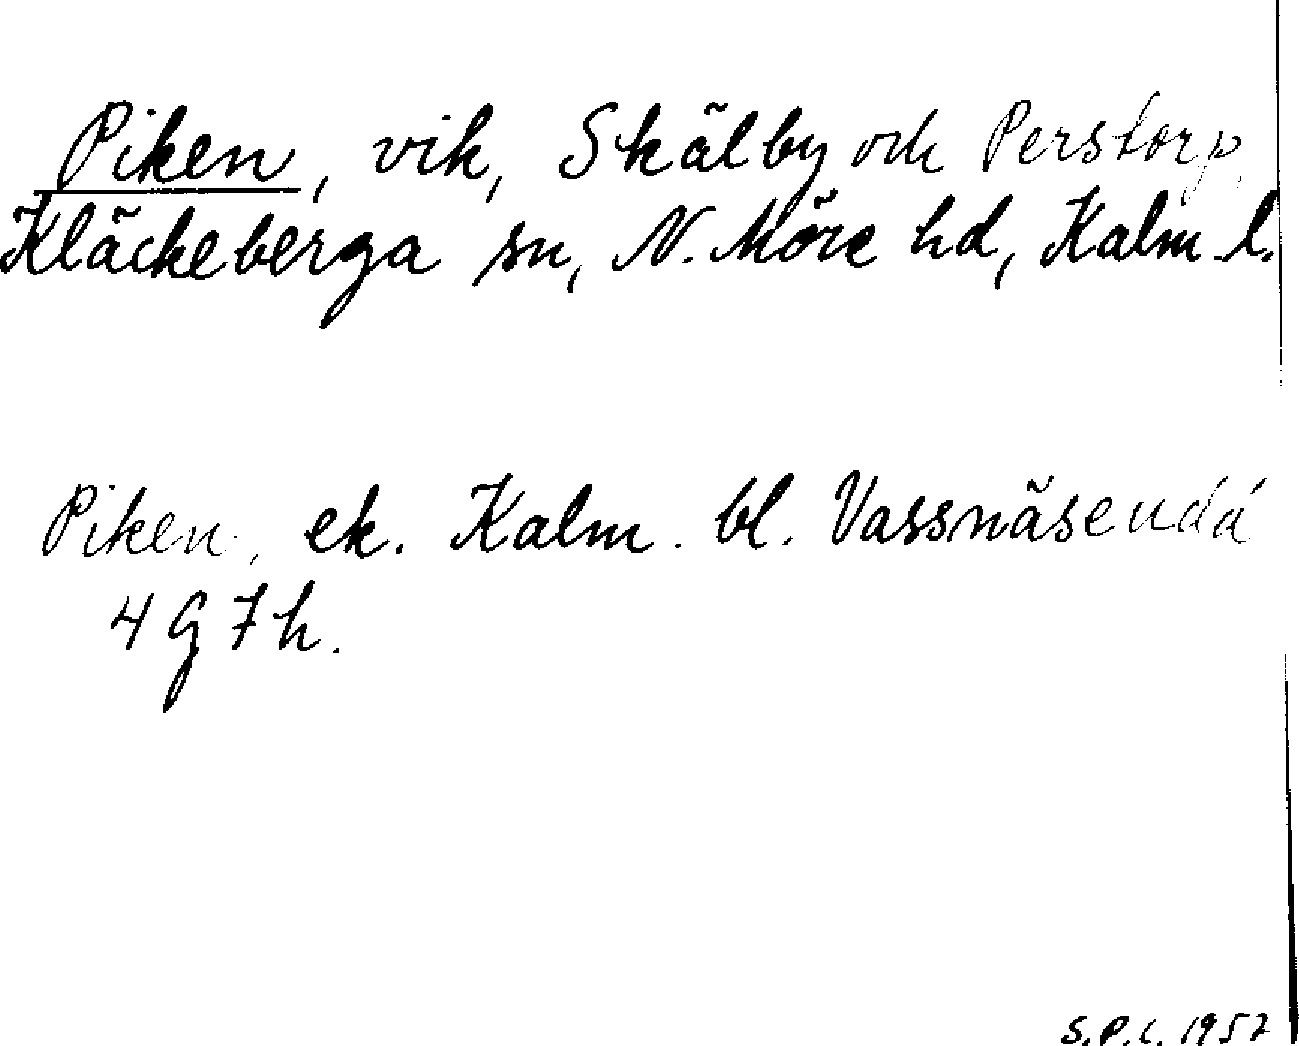 Piken, vik, Skälby och Perstorp,
Kläckeberga sn, N. Möre hd, Kalm. l.
Piken, ek. Kalm. bl. Vassnäsudd
4 G 7 h.
S.P.L. 1957